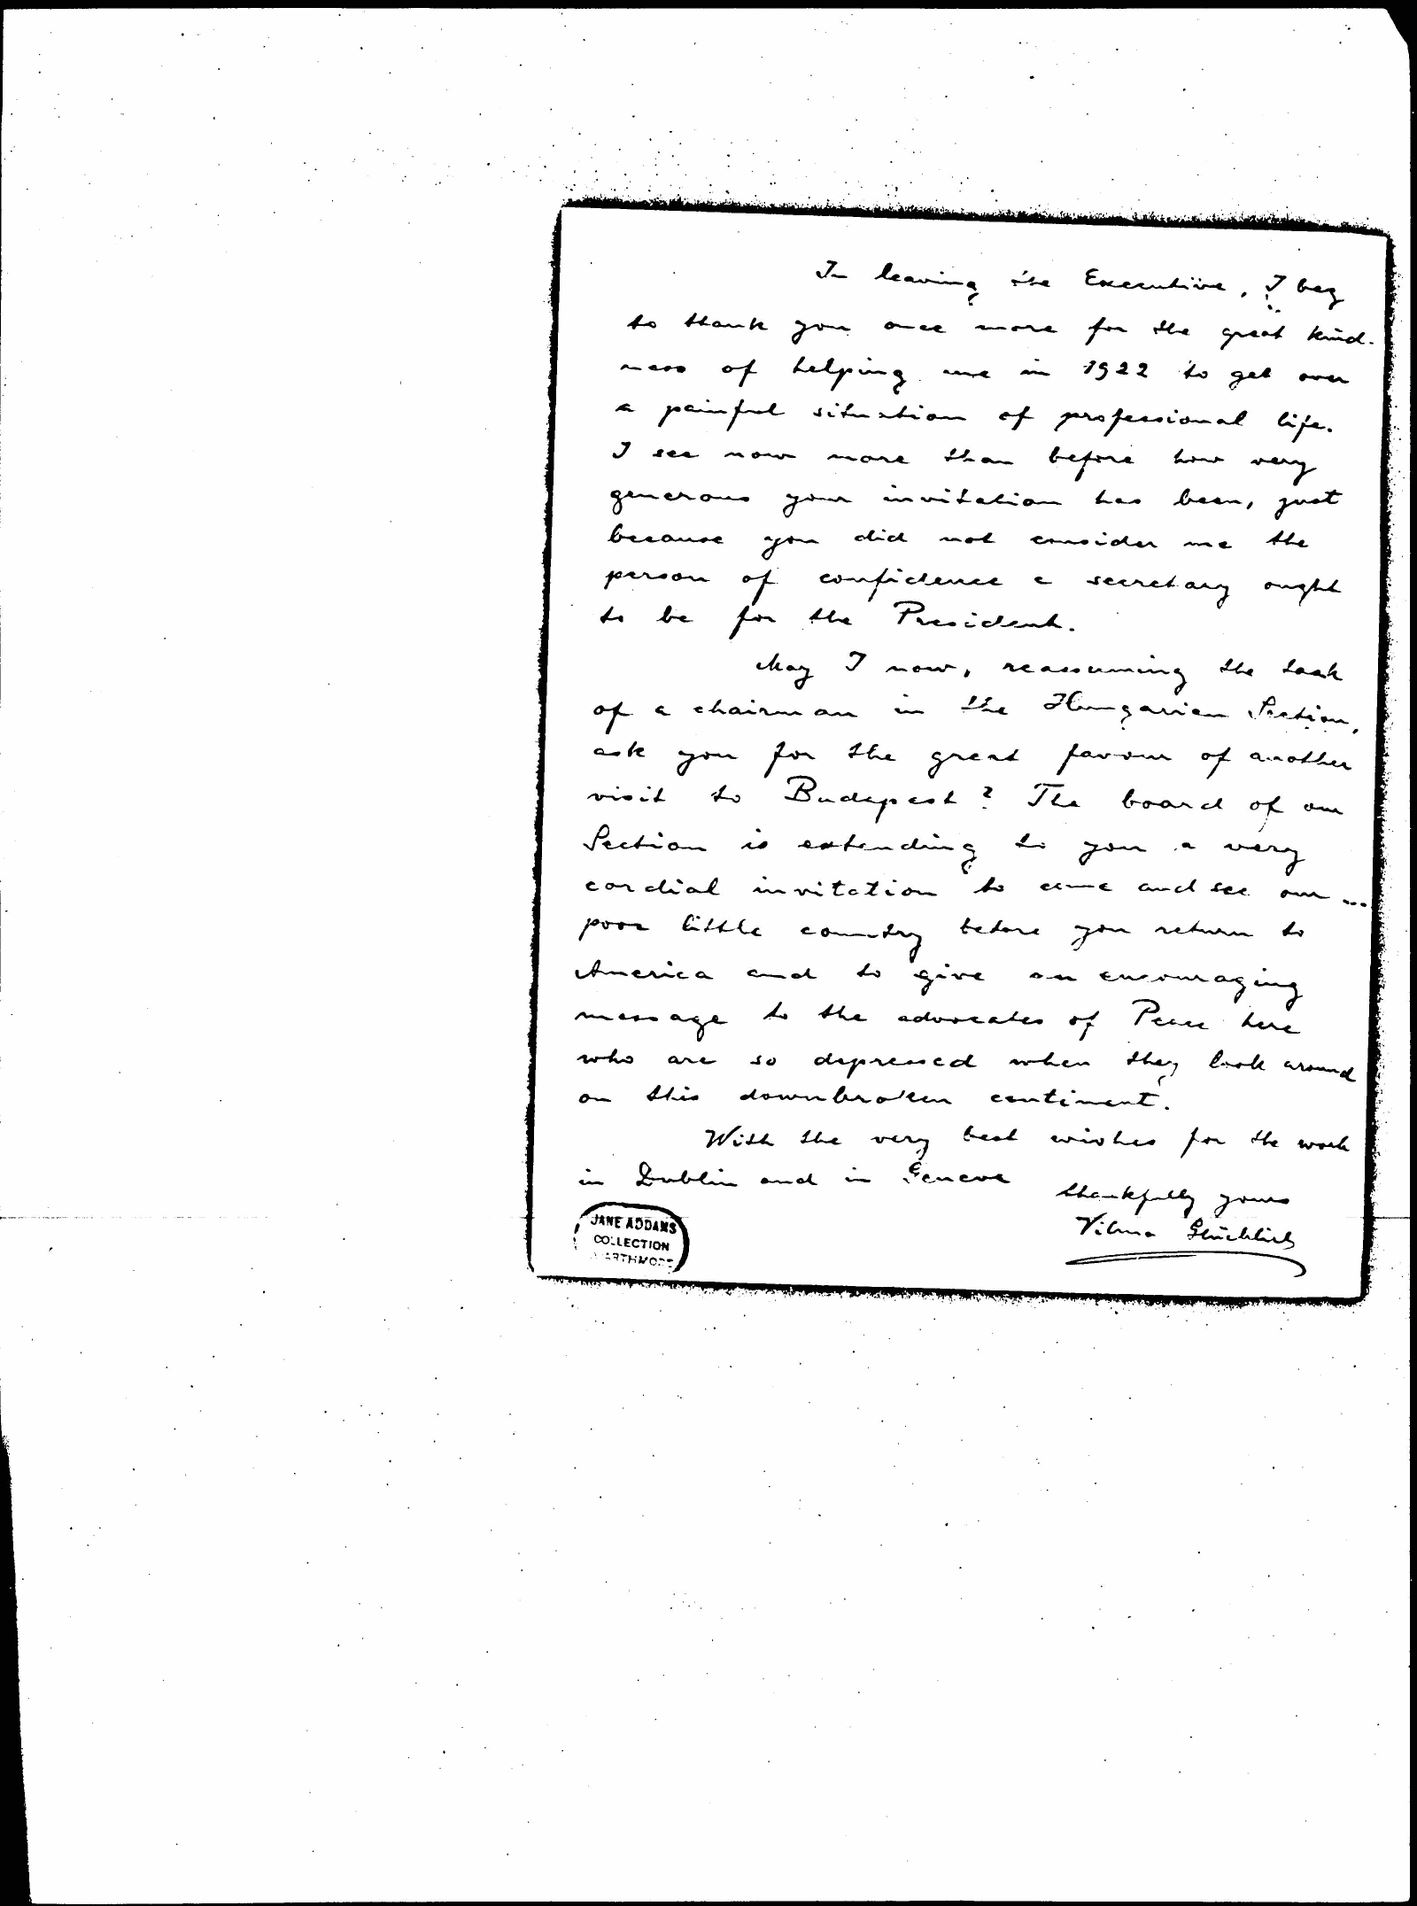 In leaving the Executive, I beg
to thank you once more for the great kind-
ness of helping me in 1922 to get over
a painful situation of professional life.
I see now more than before how very
generous your invitation has been, just
because you did not consider me the
person of confidence a secretary ought
to be for the President.
May I now, reassuming the task
of a chairman in the Hungarian Section,
ask you for the great favour of another
visit to Budapest? The board of our
Section is extending to you a very
cordial invitation to come and see our ...
poor little country before you return to
America and to give an encouraging
message to the advocates of Peace here
who are so depressed when they look around
on this downbroken continent.
With the very best wishes for the work
in Dublin and in Geneve
thankfully yours
Vilma Glücklich
JANE ADDAMS
COLLECTION